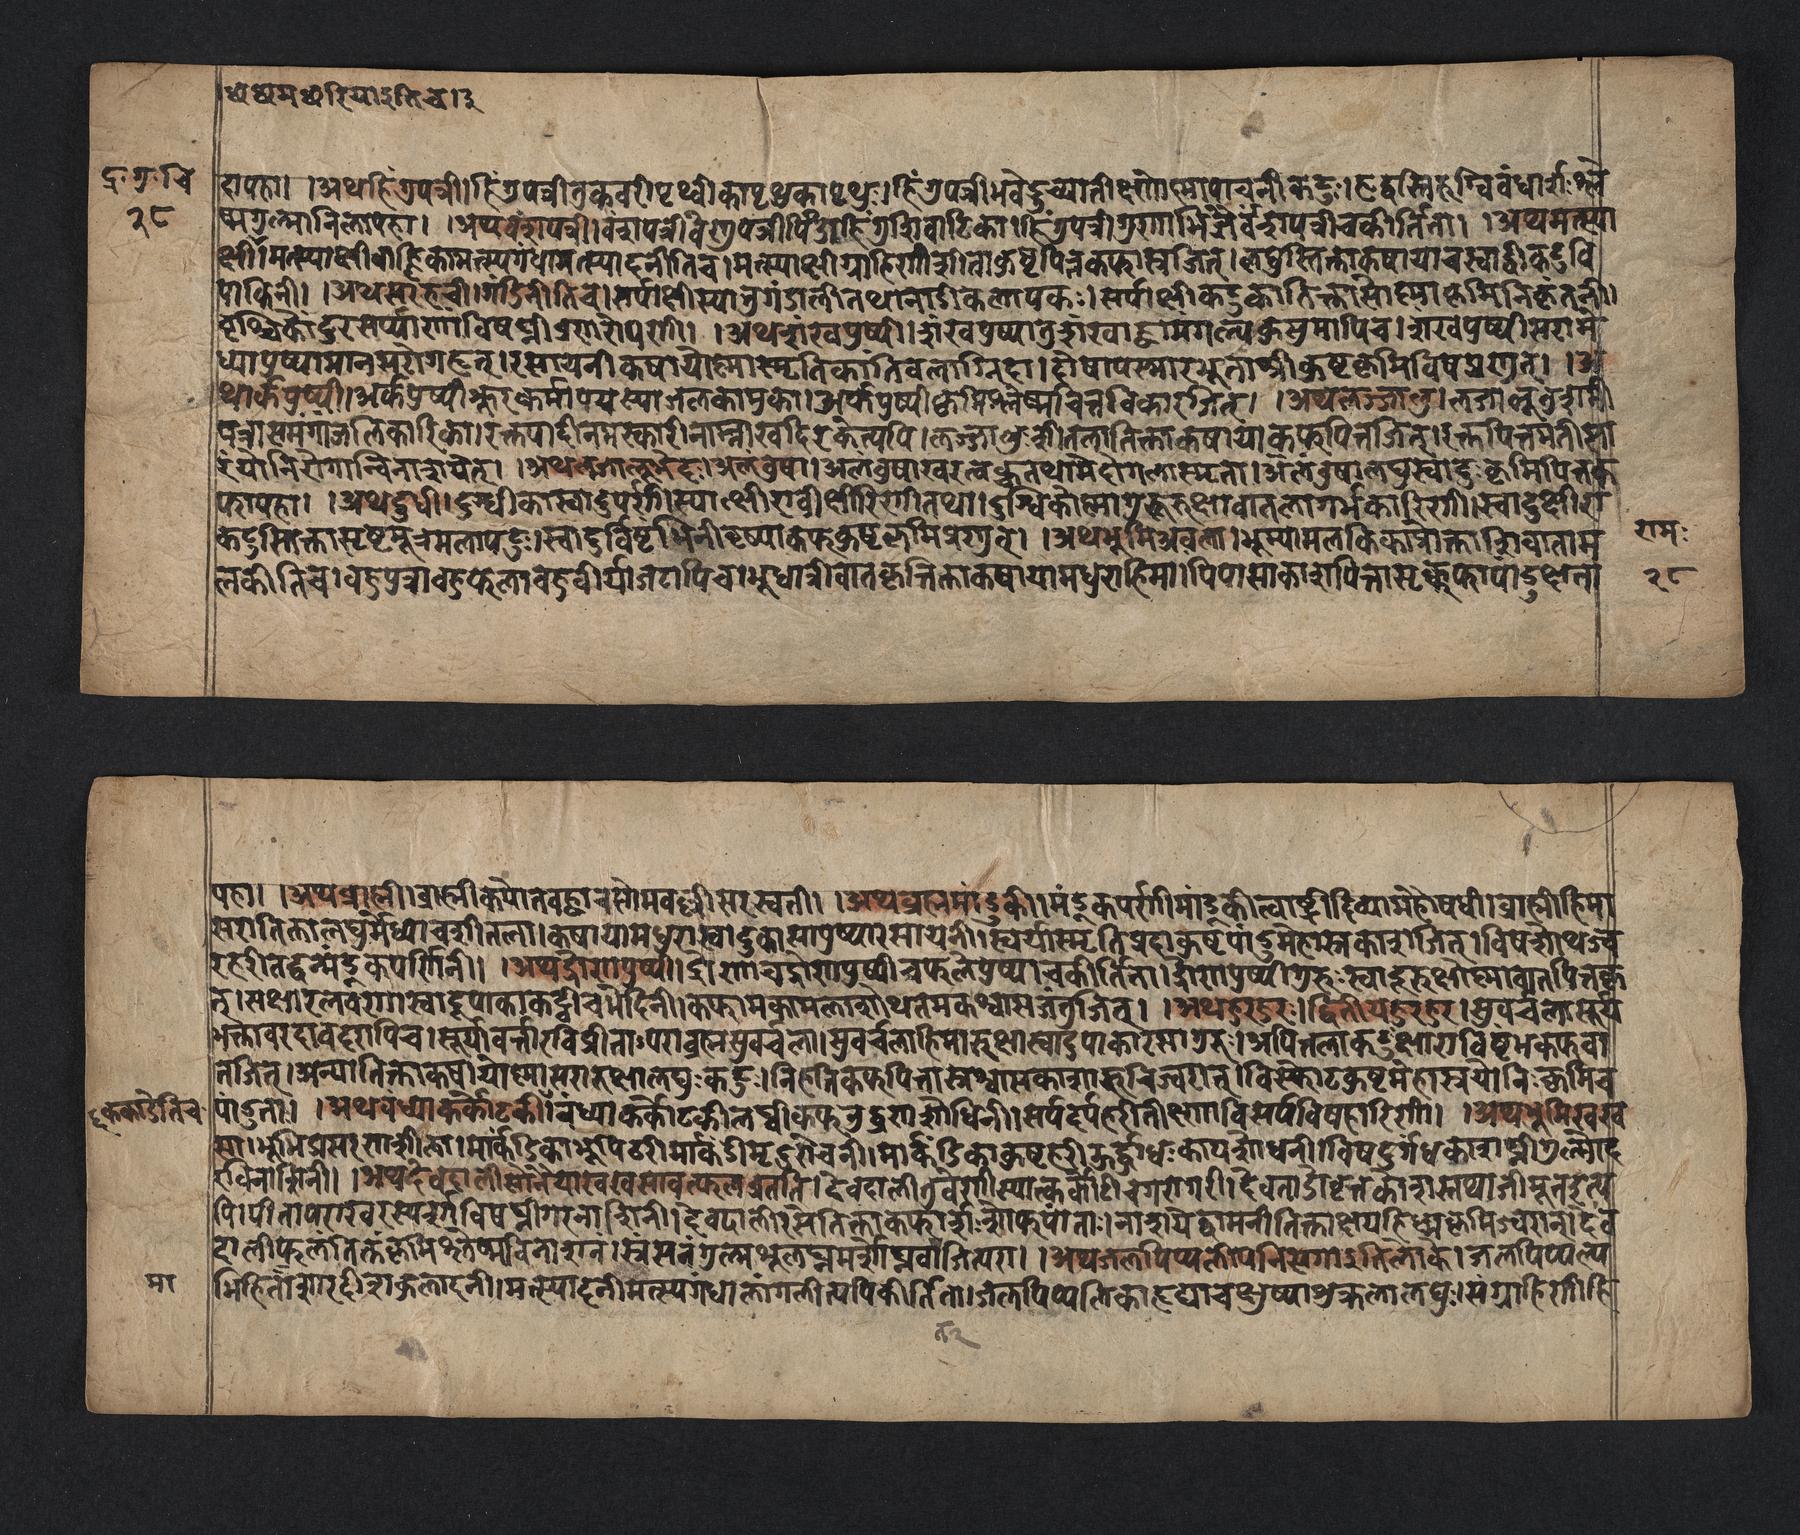 द्र॰गु॰चि
२८
दापहा। ।अथहिंगुपत्री।हिंगुपत्रीतुकवरीपृथ्वीकापृथुकापृथुः।हिंगुपत्रीभवेद्रुच्यातीक्ष्णोष्मापाचनीकटुः।हृद्वस्तिरुग्विबंधार्शःश्ले
ष्मगुल्मानिलापहा। ।अथवंशपत्री।वंशपत्रीवेणुपत्रीपिंडाहिंगुशिवाटिका।हिंगुपत्रीगुणाभिज्ञैर्वंशपत्रीचकीर्तिता। ।अथमत्स्या
क्षी।मत्स्याक्षीबाह्लिकामत्स्यगंधामत्स्यादनीतिच।मत्स्याक्षीग्राहिणीशीताकुष्ठपित्तकफास्रजित्।लघुस्तिक्ताकषायाचस्वाद्वीकटुवि
पाकिनी। ।सर्पाक्षीस्यात्तुगंडालीतथानाडीकलापकः।सर्पाक्षीकटुकातिक्तासोष्माकृमिनिकृंतनी।
वृश्चिकोंदुरसर्पाणांविषघ्नीव्रणरोपणी। ।अथशंखपुष्पी।शंखपुष्पीतुशंखाह्वामंगल्यकुसुमापिच।शंखपुष्पीसरामे
ध्यावृष्यामानसरोगहृत्।रसायनीकषायोष्मास्मृतिकांतिबलाग्निदा।दोषापस्मारभूताश्रीकुष्टकृमिविषप्रणुत्। ।अ
थार्कपुष्पी।अर्कपुष्पीक्रूरकर्मापयस्याजलकामुका।अर्कपुष्पीकृमिश्लेष्मचित्तविकारजित्। ।अथलज्जालु।लज्जालुतुशमी
पत्रासमंगांजलिकारिका।रक्तपादीनमस्कारीनाम्नाखदिरकेत्यपि।लज्जालुःशीतलातिक्ताकषायाकफपित्तजित्।रक्तपित्तमतीसा
रंयोनिरोगान्विनाशयेत्। ।अथलज्जालुभेदः।अलंबुषा।अलंबुषाखरत्वक्चतथामेदोगलास्मृता।अलंबुषालघुस्वादुःकृमिपित्तक
फापहा। ।अथदुधी।दुग्धीकास्वादुपर्णीस्यात्क्षीरावीक्षीरिणीतथा।दुग्धिकोष्मागुरुरुक्षावातलागर्भकारिणी।स्वादुक्षीरा
कटुस्तिक्तासृष्टमूत्रमलापटुः।स्वादुर्विष्टंभिनीवृष्याकफकुष्टकृमिप्रणुत्। ।अथभूमिअवला।भूम्यामलकिकाप्रोक्ताशिवाताम
लकीतिच।बहुपुत्राबहुफलाबहुवीर्याजटापिच।भूधात्रीवातकृत्तिक्ताकषायामधुराहिमा।पिपासाकाशपित्तासृक्कफपांडुक्षता
रामः
२८
पहा। ।अथब्राह्मी।ब्राह्मीकपोतवङ्काचसोमवल्लीसरस्वती। ।अथब्रह्ममांडुकी।मंडूकपर्णीमांडूकीत्वाष्ट्रीदिव्यामहौषधी।ब्राह्मीहिमा
सरातिक्तालघुर्मेध्याचशीतला।कषायामधुरास्वादुपाकायुष्यारसायनी।स्वर्यास्मृतिप्रदाकुष्टपांडुमेहास्रकाशजित्।विषशोथज्व
रहरीतद्वन्मंडूकपर्णिनी। ।अथद्रोणपुष्पी।द्रोणाचद्रोणपुष्पीचफलेपुष्पाचकीर्तिता।द्रोणपुष्पीगुरुःस्वादूरुक्षोष्मावातपित्तकृ
त्।सक्षारलवणास्वादूपाकाकट्वीचभेदिनी।कफामकामलाशोथतमकश्वासजंतुजित्। ।अथहुरहुर।द्वितीयहुरहुर।सुवर्चलासूर्य
भक्तावरदाबदरापिच।सूर्यावर्तारविप्रीताऽपराब्रह्मसुवर्चला।सुवर्चलाहिमारुक्षास्वादुपाकारसागुरुः।अपित्तलाकटुक्षाराविष्टंभकफवा
तजित्।अन्यातिक्ताकषायोष्मासरारुक्षालघुःकटुः।निहन्तिकफपित्तास्रश्वासकाशारुचिज्वरान्।विस्फोटकुष्टमेहास्रयोनिरुक्कृमि
पांडुता। ।अथवंध्याकर्कोटकी।वंध्याकर्कोटकीलघ्वीकफनुद्व्रणशोधिनी।सर्पदर्पहरीतीक्ष्णाविसर्पविषहारिणी। ।अथभूमिखख
सा।मार्कंडिकाभूमिचरीमार्कंडीमृदुरेचनी।मार्कंडिकाकुष्टहरीऊर्द्ध्वाधःकायशोधनी।विषदुर्गंधकाशघ्नीगुल्मोद
रविनाशिनी। ।देवदालीतुवेणीस्यात्कर्कोटीचगरागरी।देवताडोवृत्तकोशस्तथाजीमूतइत्य
पि।पीतापराखरस्पर्शाविषघ्नीगरनाशिनी।
दालीफलंतिक्तंकृमिश्लेष्मविनाशनं।स्रंसनंगुल्मशूलघ्नमर्शोघ्नंवातजित्परा। ।जलपिप्पल्य
भिहिताशारदीशकुलादनी।मत्स्यादनीमत्स्यगंधालांगलीत्यपिकीर्तिता।जलपिप्पलिकाहृद्याचक्षुष्याशुक्रलालघुः।संग्राहिणीहि